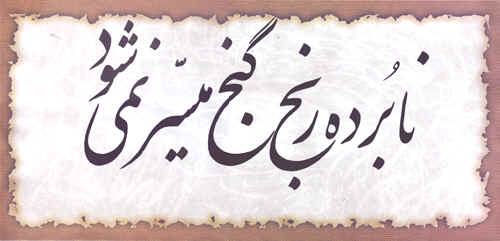 نابُرده رنج گنج میسّر نمی شود